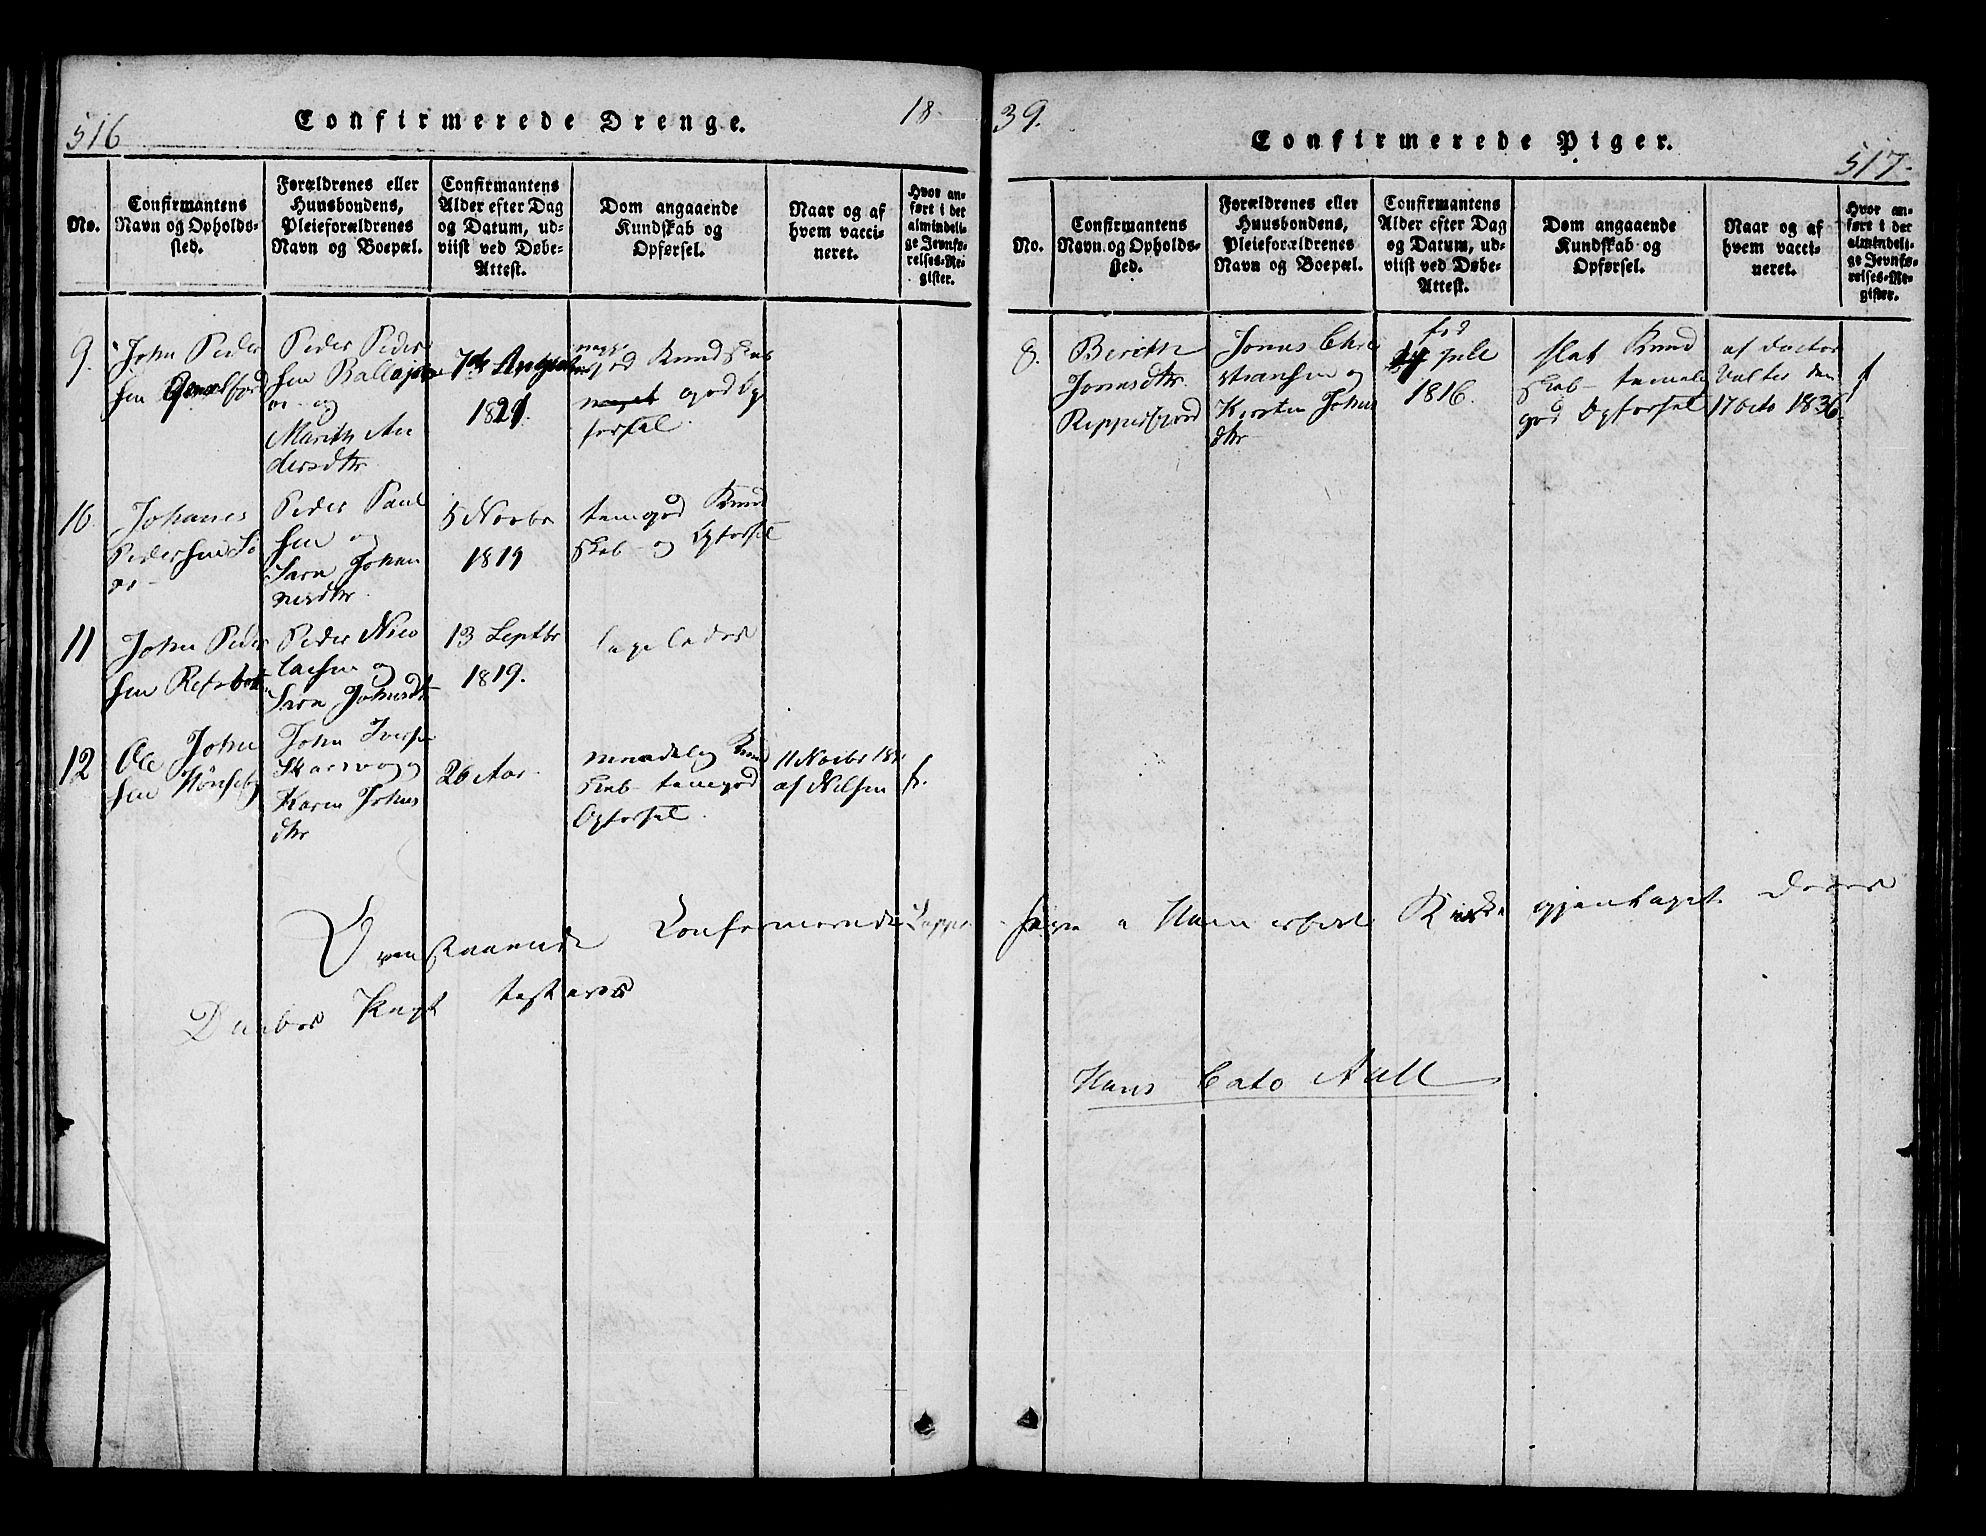 516
Confirmerede Drenge.
18
No.
Confirmantens
Navn og Opholds-
sted.
Forældrenes eller
Huusbondens,
Pleieforældrenes
Navn og Boepæl.
Confirmantens
Alder efter Dag
og Datum, ud-
viist ved Døbe-
Attest.
Dom angaaende
Kundskab og
Opførsel.
Naar og af
hvem vacci-
neret.
Hvor an-
ført i det
almindeli-
ge Jevnfø-
relses-Re-
gister.
9.
John Peder
sen
Peder Peder
sen
og
Marith An
dersdtr.
7de August
1821.
meget
god Kundskab
meget god Op
førsel.
10.
Johanes
Pedersen
Peder Paul
sen og
Sara Johan
nesdtr.
5 Novbr
1819
temgod Kund
skab og Opførsel
11
John Peder
sen Refsbotn
Peder Nico
laisen og
Sara Johnsdtr
13 Septbr
1819.
ligeledes
12
Ole John
sen Hønseby
John Iversen
og
Karen Johns
dtr
26 Aar.
maadelig Kund
skab temgod
Opførsel.
11 Novbr
af Nilsen
f.
Ovenstaaende Confirmerede Lapper
Daabes Pagt
39.
Confirmerede Piger.
517.
No.
Confirmantens
Navn og Opholds-
sted.
Forældrenes eller
Huusbondens,
Pleieforældrenes
Navn og Boepæl.
Confirmantens
Alder efter Dag
og Datum, ud-
viist ved Døbe-
Attest.
Dom angaaende
Kundskab og
Opførsel.
Naar og af
hvem vacci-
neret.
Hvor an-
ført i det
almindeli-
ge Jevnfø-
relses-Re-
gister.
8.
Berith
Jonasdtr.
Reppefjord
Jonas Chri
stiansen og
Kirsten Johns
dtr
fød
Juli
1816.
slet Kund
skab temelig
god Opførsel
af Doctor
Valter den
17 Octo 1836.
f
i Hammerfest Kirke gjentaget deres
Hans Cato Aall